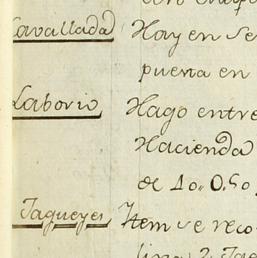 Cavallada Hay en Se
puerta en
Laborio Hago entre
Hacienda
de 10.0.50
Jagueyes Item se reco